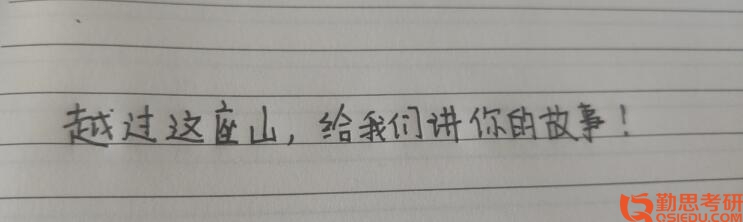 越过这座山，给我们讲你的故事！
勤思考研
QSIEDU.COM